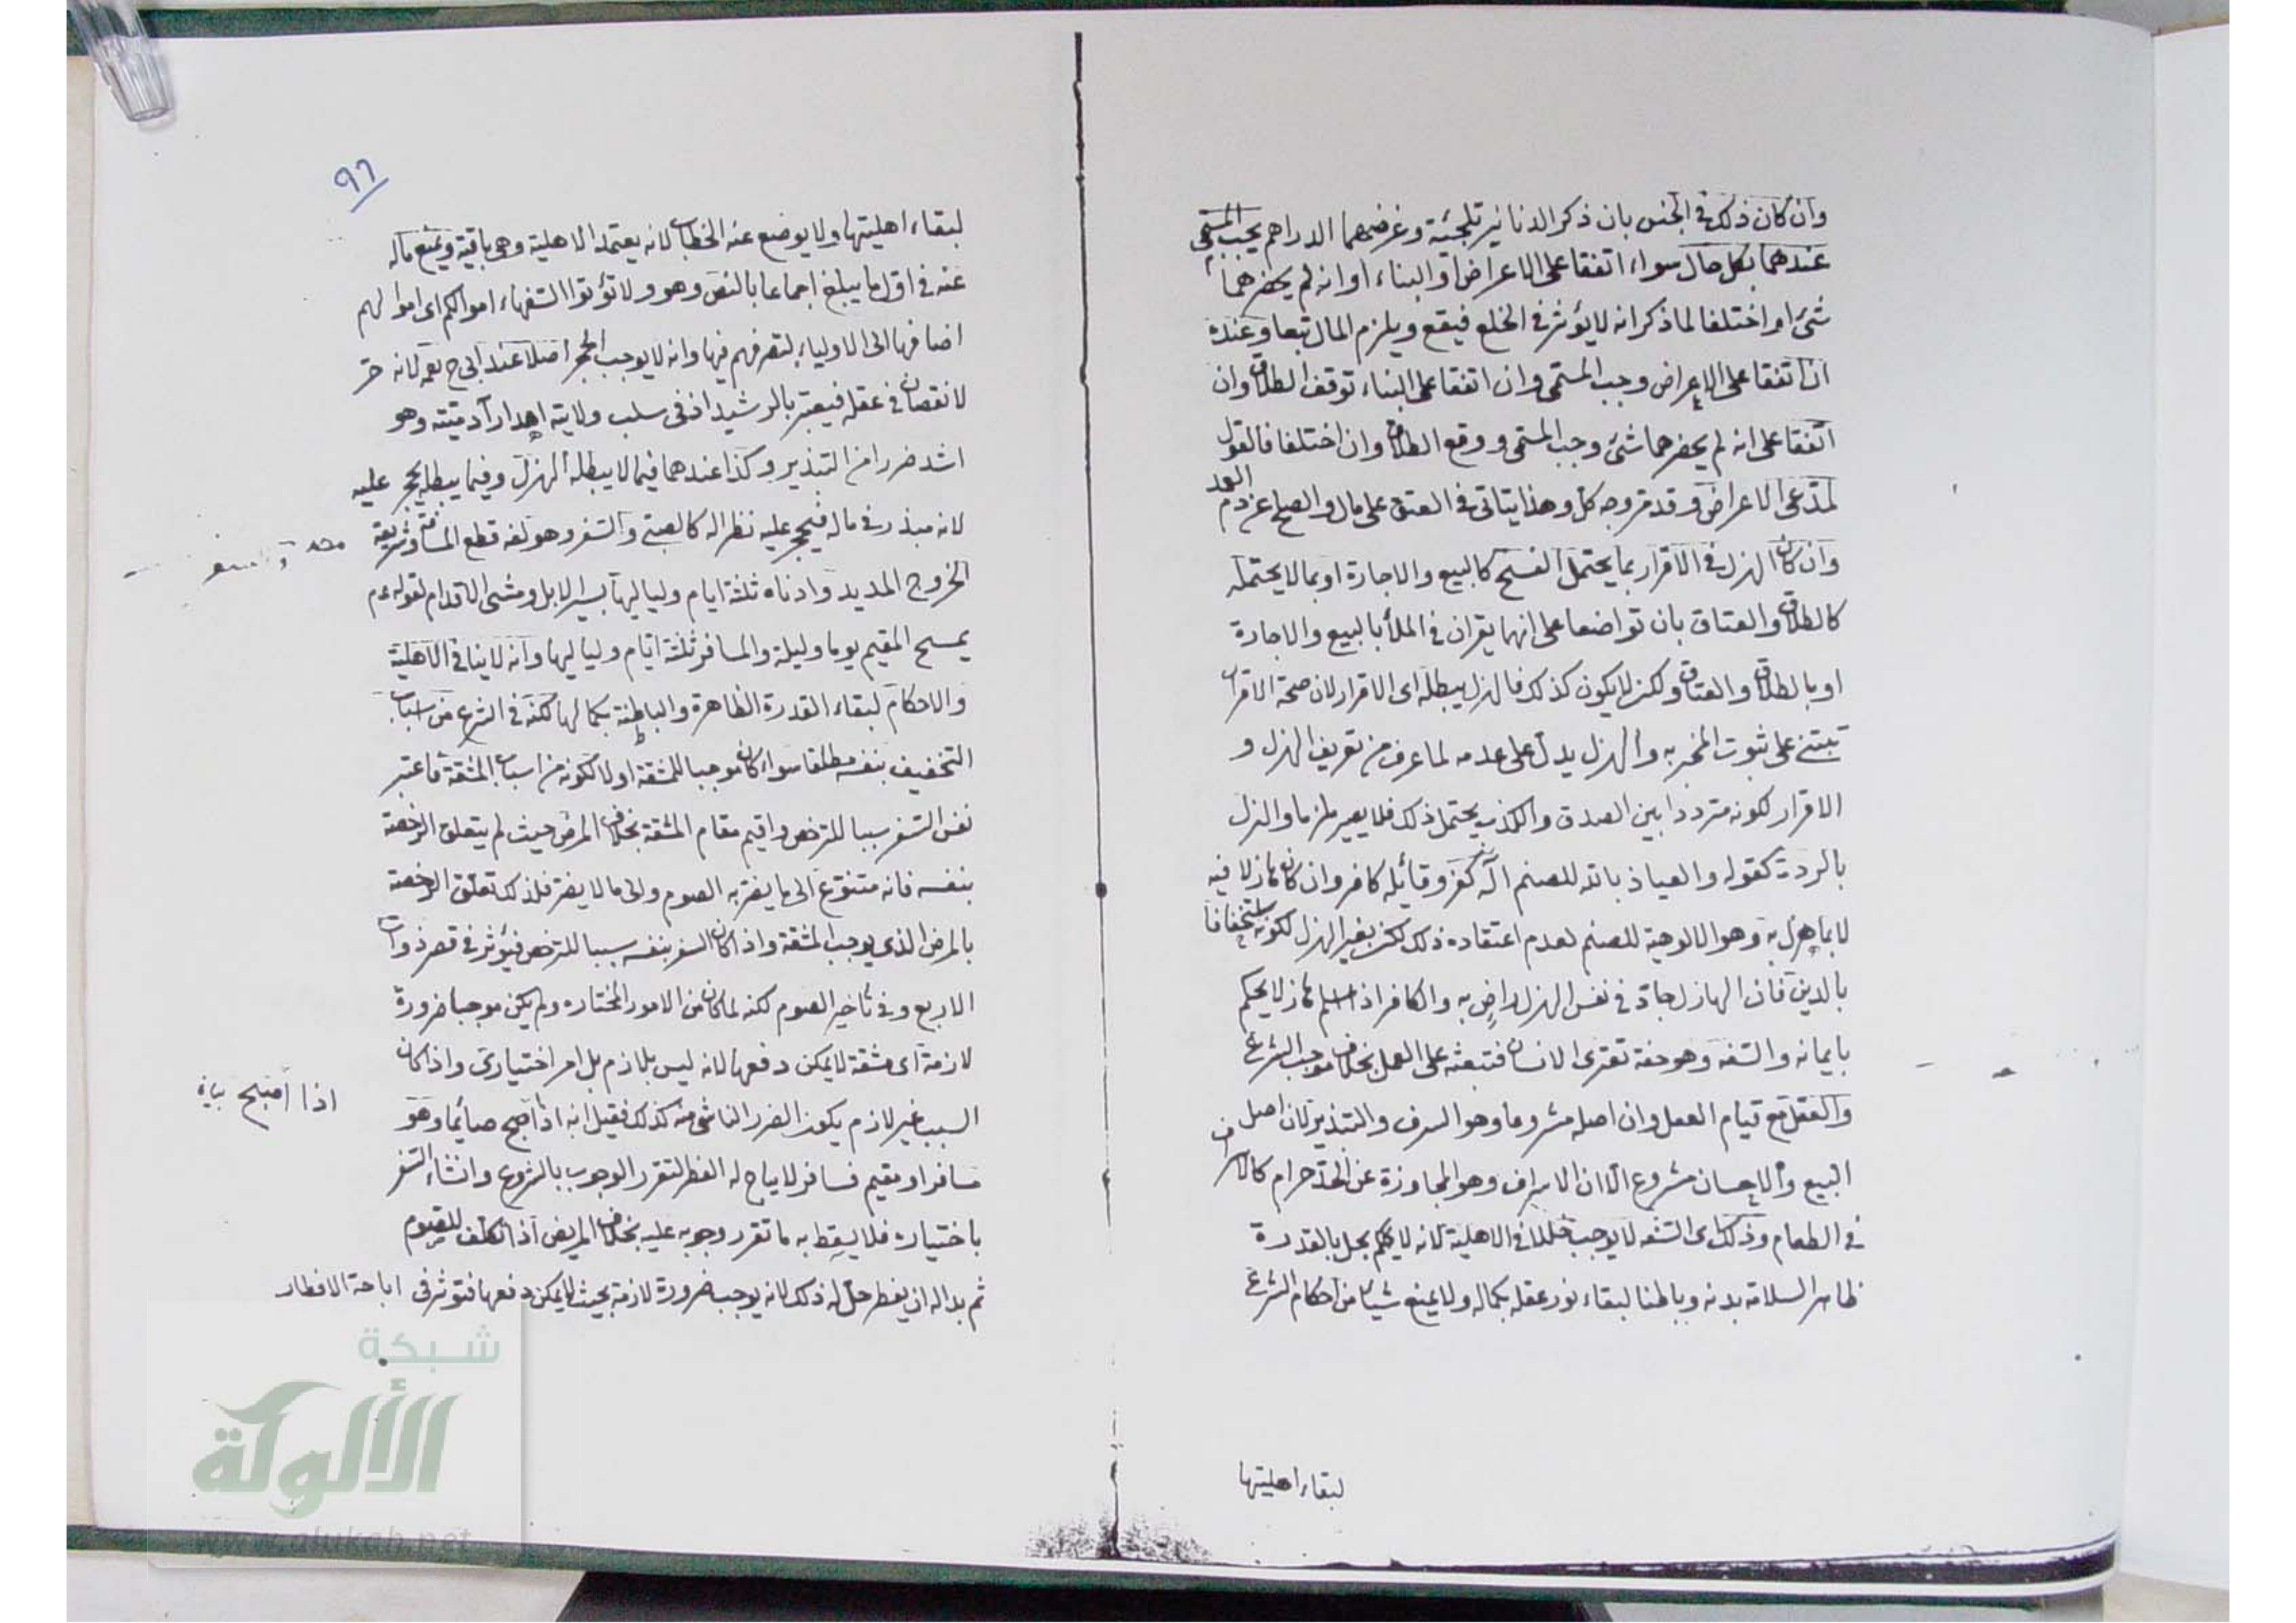 وان كان ذلك في الجنس بان ذكر الدنانير تلجئة وغرضهما الدراهم يجب المسمى
عندهما بكل حال سواء اتفقا على الاعراض او البناء او انه لم يحضرهما
شئ او اختلفا لما ذكر انه لا يؤثر في الخلع فيقع ويلزم المال تبعا وعنده
ان اتفقا على الاعراض وجب المسمى وان اتفقا على البناء توقف الطلاق وان
اتفقا على انه لم يحضرهما شئ وجب المسمى ووقع الطلاق وان اختلفا فالقول
لمدعى الاعراض وقد مر وجه كل وهذا يتاتى في العتق على مال والصلح عن دم العمد
وان كان الهزل في الاقرار بما يحتمل الفسخ كالبيع والاجارة او بما لا يحتمله
كالطلاق والعتاق بان تواضعا على انهما يقران في الملأ بالبيع والاجارة
او بالطلاق والعتاق ولكن لا يكون كذلك فالهزل يبطله اى الاقرار لان صحة الاقرار
تبتنى على ثبوت المخبر به والهزل يدل على عدمه لما عرف من تعريف الهزل و
الاقرار لكونه مترددا بين الصدق والكذب يحتمل ذلك فلا يصير ملزما والهزل
بالردة كقوله والعياذ بالله للصنم اله كفر وقائله كافر وان كان هازلا فيه
لا بما هزل به وهو الالوهية للصنم لعدم اعتقاده ذلك لكن بعين الهزل لكونه استخفافا
بالدين فان الهازل جاد في نفس الهزل راض به والكافر اذا اسلم هازلا يحكم
بايمانه والسفه وهو خفة تعترى الانسان فتبعثه على العمل بخلاف موجب الشرع
والعقل مع قيام العقل وان اصله مشروعا وهو السرف والتبذير لان اصل
البيع والاحسان مشروع الا ان الاسراف وهو المجاوزة عن الحد حرام كالاسراف
في الطعام وذلك اى السفه لا يوجب خللا في الاهلية لانه لا يحكم بخل بالقدرة
ظاهرا لسلامة بدنه وباطنا لبقاء نور عقله بكماله ولا يمنع شيئا من احكام الشرع
لبقاء اهليتها
٩٦
لبقاء اهليتها ولا يوضع عنه الخطاب لانه يعتمد الاهلية وهى باقية ويمنع ماله
عنه في اول ما يبلغ اجماعا بالنص وهو ولا تؤتوا السفهاء اموالكم اى اموالهم
اضافها الى الاولياء لتصرفهم فيها وانه لا يوجب الحجر اصلا عند ابى ح لانه حر
لا نقصان في عقله فيعتبر بالرشيد اذ فى سلب ولايته اهدار آدميته وهو
اشد ضررا من التبذير وكذا عندهما فيما لا يبطله الهزل وفيما يبطله يحجر عليه
لانه مبذر في ماله فيحجر عليه نظرا له كالصبى والسفر وهو لغة قطع المسافة وشريعة
الخروج المديد وادناه ثلثة ايام ولياليها بسير الابل ومشى الاقدام لقوله عم
يمسح المقيم يوما وليلة والمسافر ثلثة ايام ولياليها وانه لا ينافى الاهلية
والاحكام لبقاء القدرة الظاهرة والباطنة بكمالها لكنه في الشرع من اسباب
التخفيف بنفسه مطلقا سواء كان موجبا للمشقة او لا لكونه من اسباب المشقة فاعتبر
نفس السفر سببا للترخص واقيم مقام المشقة بخلاف المرض حيث لم يتعلق الرخصة
بنفسه فانه متنوع الى ما يضر به الصوم والى ما لا يضر فلذلك تعلق الرخصة
بالمرض الذى يوجب المشقة واذا كان السفر بنفسه سببا للترخص فيؤثر في قصر ذوات
الاربع وفى تاخير الصوم لكنه لما كان من الامور المختاره ولم يكن موجبا ضرورة
لازمة اى مشقة لا يمكن دفعها لانه ليس بلازم بل امر اختيارى واذا كان
السبب غير لازم يكون الضرر الناشى منه كذلك فقيل انه اذا اصبح صائما وهو
اذا اصبح بيانه
مسافر او مقيم فسافر لا يباح له الفطر لتقرر الوجوب بالشروع وانشاء السفر
باختياره فلا يسقط به ما تقرر وجوبه عليه بخلاف المريض اذا تكلف للصوم
ثم بدا له ان يفطر حل له ذلك لانه يوجب ضرورة لازمة بحيث لا يمكن دفعها فتؤثر فى اباحة الافطار
شبكة
الألوكة
www.alukah.net